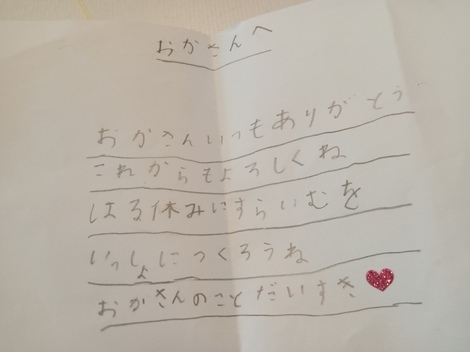 おかさんへ
おかさんいつもありがとう
これからもよろしくね
はる休みにすらいむを
いっしょにつくろうね
おかさんのことだいすき